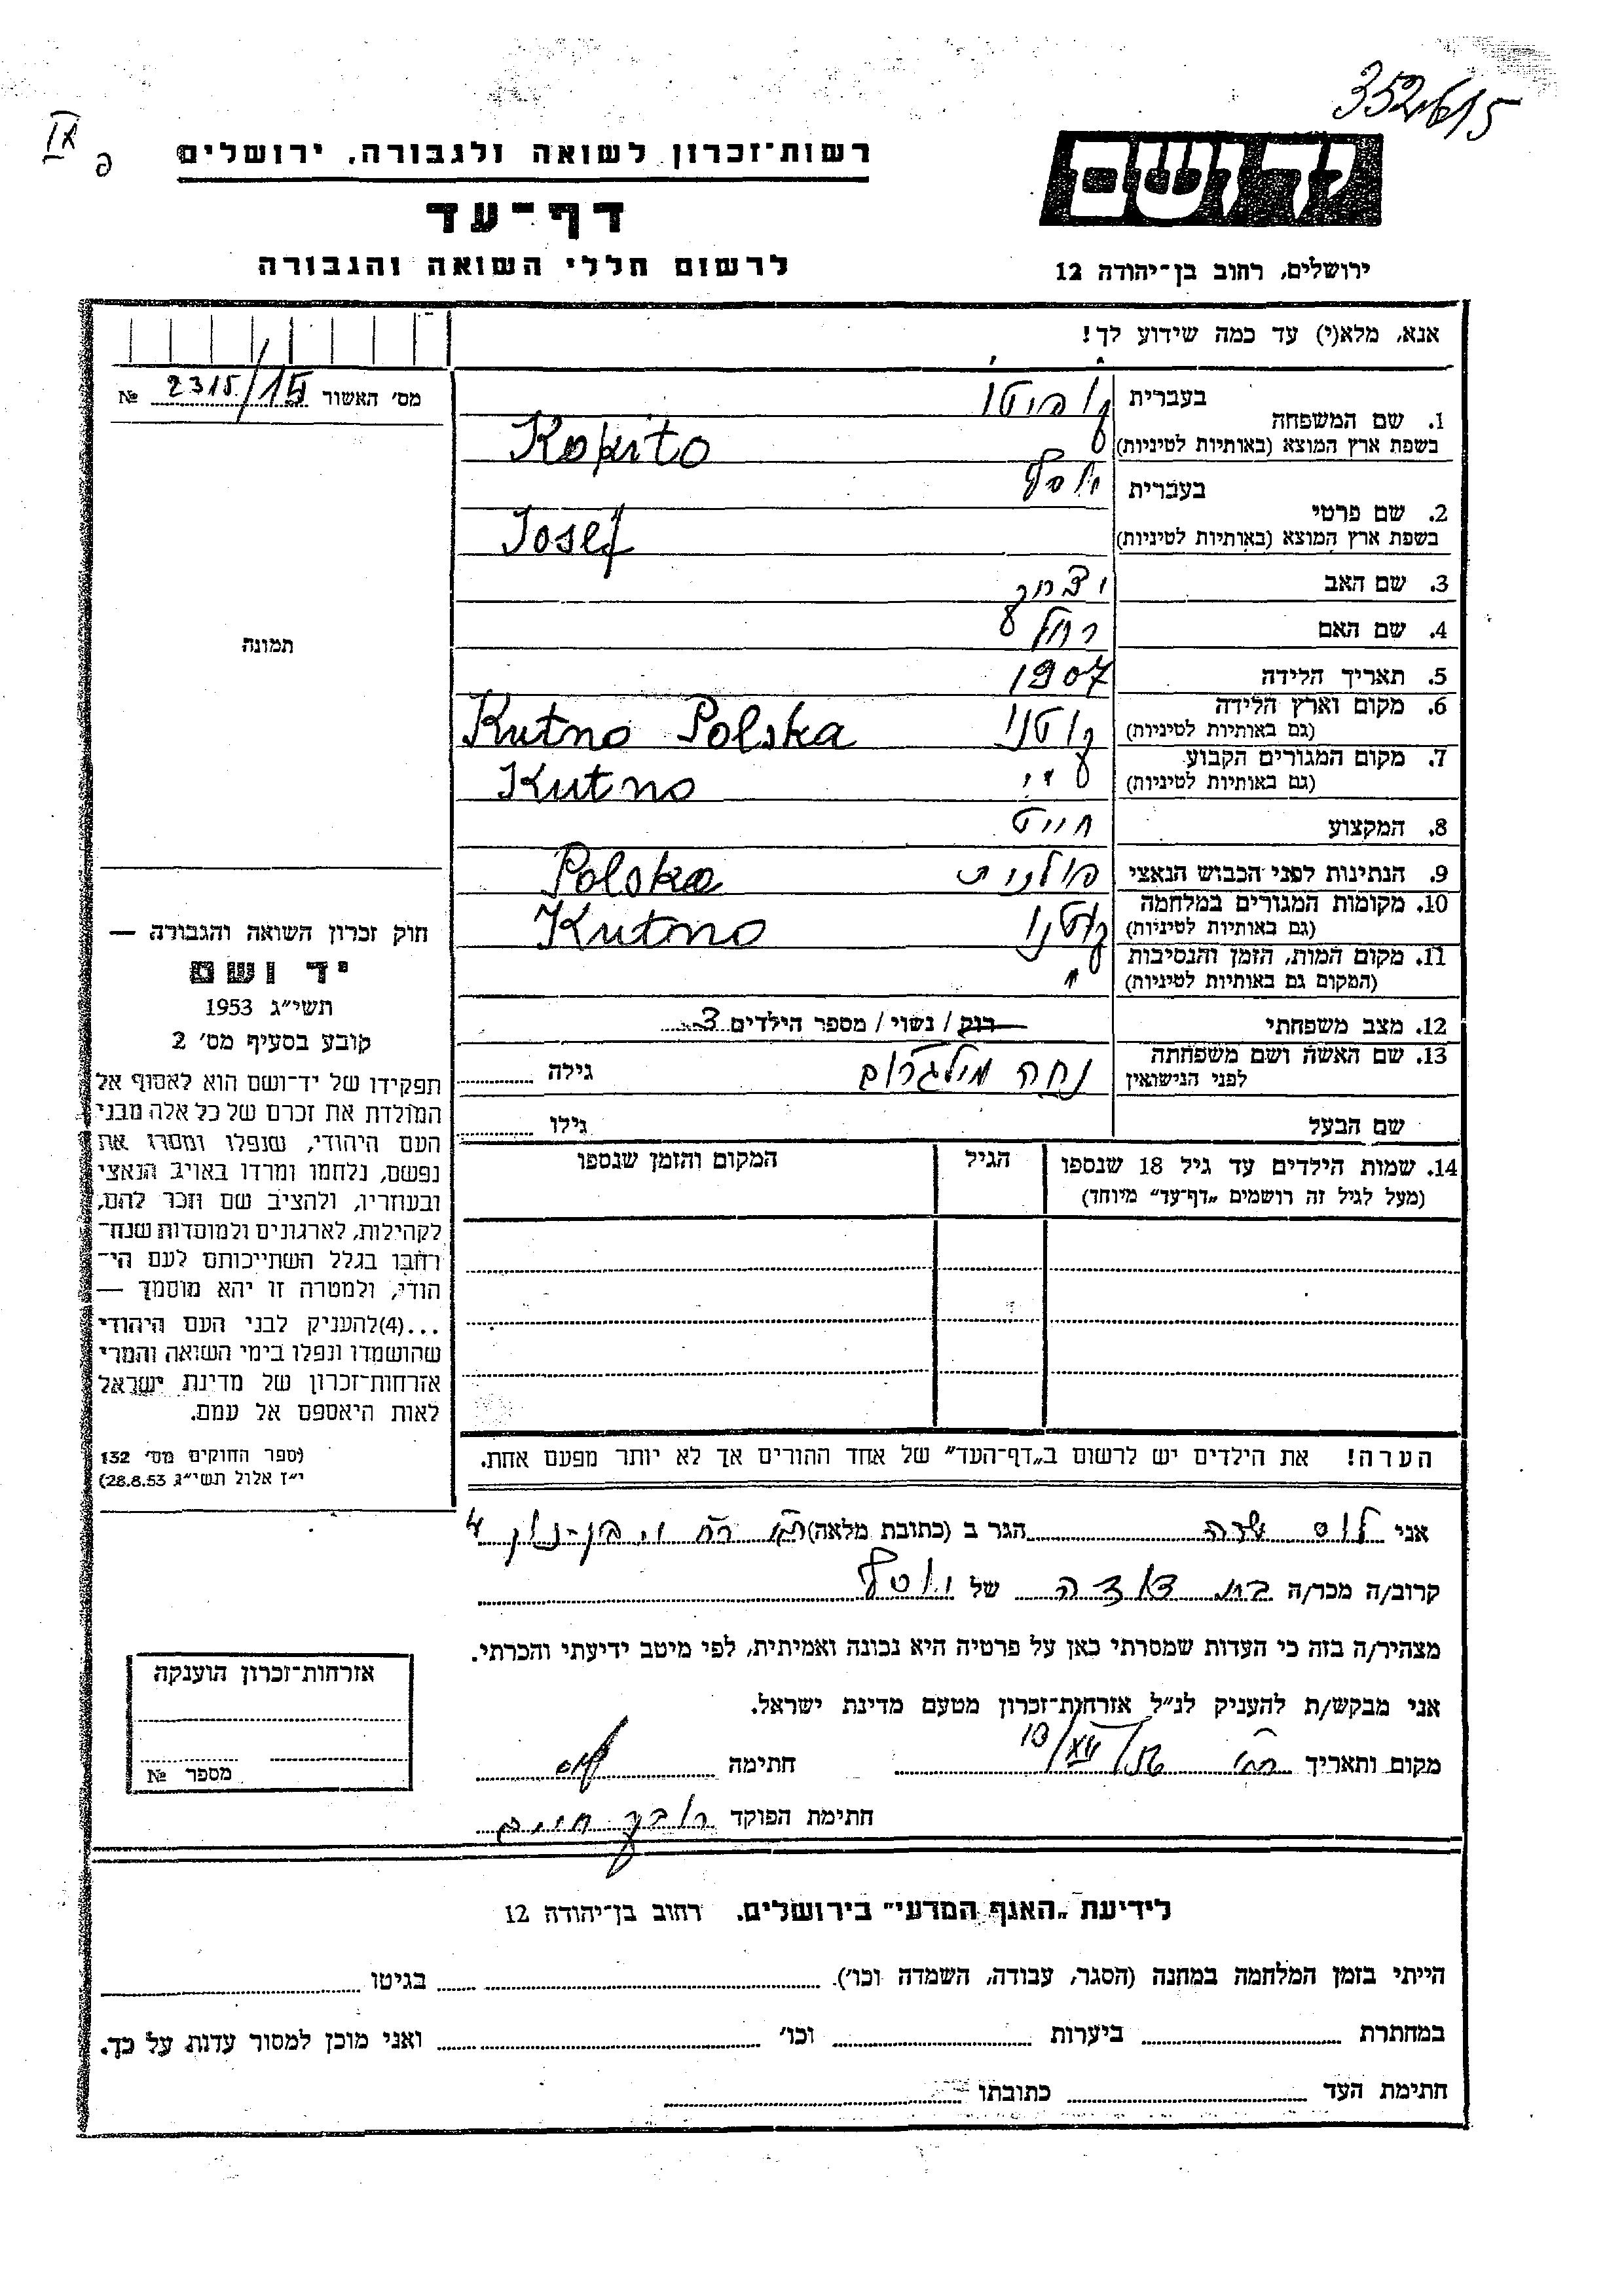 352615
IX
פ
רשות־זכרון לשואה ולגבורה, ירושלים
יד ושם
דף־עד
לרשום חללי השואה והגבורה
ירושלים, רחוב בן־יהודה 12
אנא, מלא(י) עד כמה שידוע לך!
מס׳ האשור 2315/15 №
1. שם המשפחה בעברית קופיטו
בשפת ארץ המוצא (באותיות לטיניות) Kopito
2. שם פרטי בעברית יוסף
בשפת ארץ המוצא (באותיות לטיניות) Josef
3. שם האב יצחק
4. שם האם רחל
5. תאריך הלידה 1907
6. מקום וארץ הלידה (גם באותיות לטיניות) קוטנו Kutno Polska
7. מקום המגורים הקבוע (גם באותיות לטיניות) Kutno
8. המקצוע חייט
9. הנתינות לפני הכבוש הנאצי פולנית Polska
10. מקומות המגורים במלחמה (גם באותיות לטיניות) קוטנו Kutno
11. מקום המות, הזמן והנסיבות (המקום גם באותיות לטיניות) "
12. מצב משפחתי רוק / נשוי / מספר הילדים 3
13. שם האשה ושם משפחתה לפני הנישואין נחה מילגרום גילה
שם הבעל גילו
14. שמות הילדים עד גיל 18 שנספו הגיל המקום והזמן שנספו
(מעל לגיל זה רושמים „דף־עד” מיוחד)
הערה! את הילדים יש לרשום ב„דף־העד” של אחד ההורים אך לא יותר מפעם אחת.
תמונה
חוק זכרון השואה והגבורה —
יד ושם
תשי״ג 1953
קובע בסעיף מס׳ 2
תפקידו של יד־ושם הוא לאסוף אל
המולדת את זכרם של כל אלה מבני
העם היהודי, שנפלו ומסרו את
נפשם, נלחמו ומרדו באויב הנאצי
ובעוזריו, ולהציב שם וזכר להם,
לקהילות, לארגונים ולמוסדות שנח־
רבו בגלל השתייכותם לעם הי־
הודי, ולמטרה זו יהא מוסמך —
...(4)להעניק לבני העם היהודי
שהושמדו ונפלו בימי השואה והמרי
אזרחות־זכרון של מדינת ישראל
לאות היאספם אל עמם.
(ספר החוקים מס׳ 132
י״ז אלול תשי״ג 28.8.53)
אני לוס שרה הגר ב (כתובת מלאה) רח בן-נון 4
קרוב/ה מכר/ה בת דודה של יוסף
מצהיר/ה בזה כי העדות שמסרתי כאן על פרטיה היא נכונה ואמיתית, לפי מיטב ידיעתי והכרתי.
אני מבקש/ת להעניק לנ״ל אזרחות־זכרון מטעם מדינת ישראל.
מקום ותאריך חתימה
חתימת הפוקד חיים
אזרחות־זכרון הוענקה
מספר №
לידיעת „האגף המדעי” בירושלים. רחוב בן־יהודה 12
הייתי בזמן המלחמה במחנה (הסגר, עבודה, השמדה וכו׳) בגיטו
במחתרת ביערות וכו׳ ואני מוכן למסור עדות על כך.
חתימת העד כתובתו